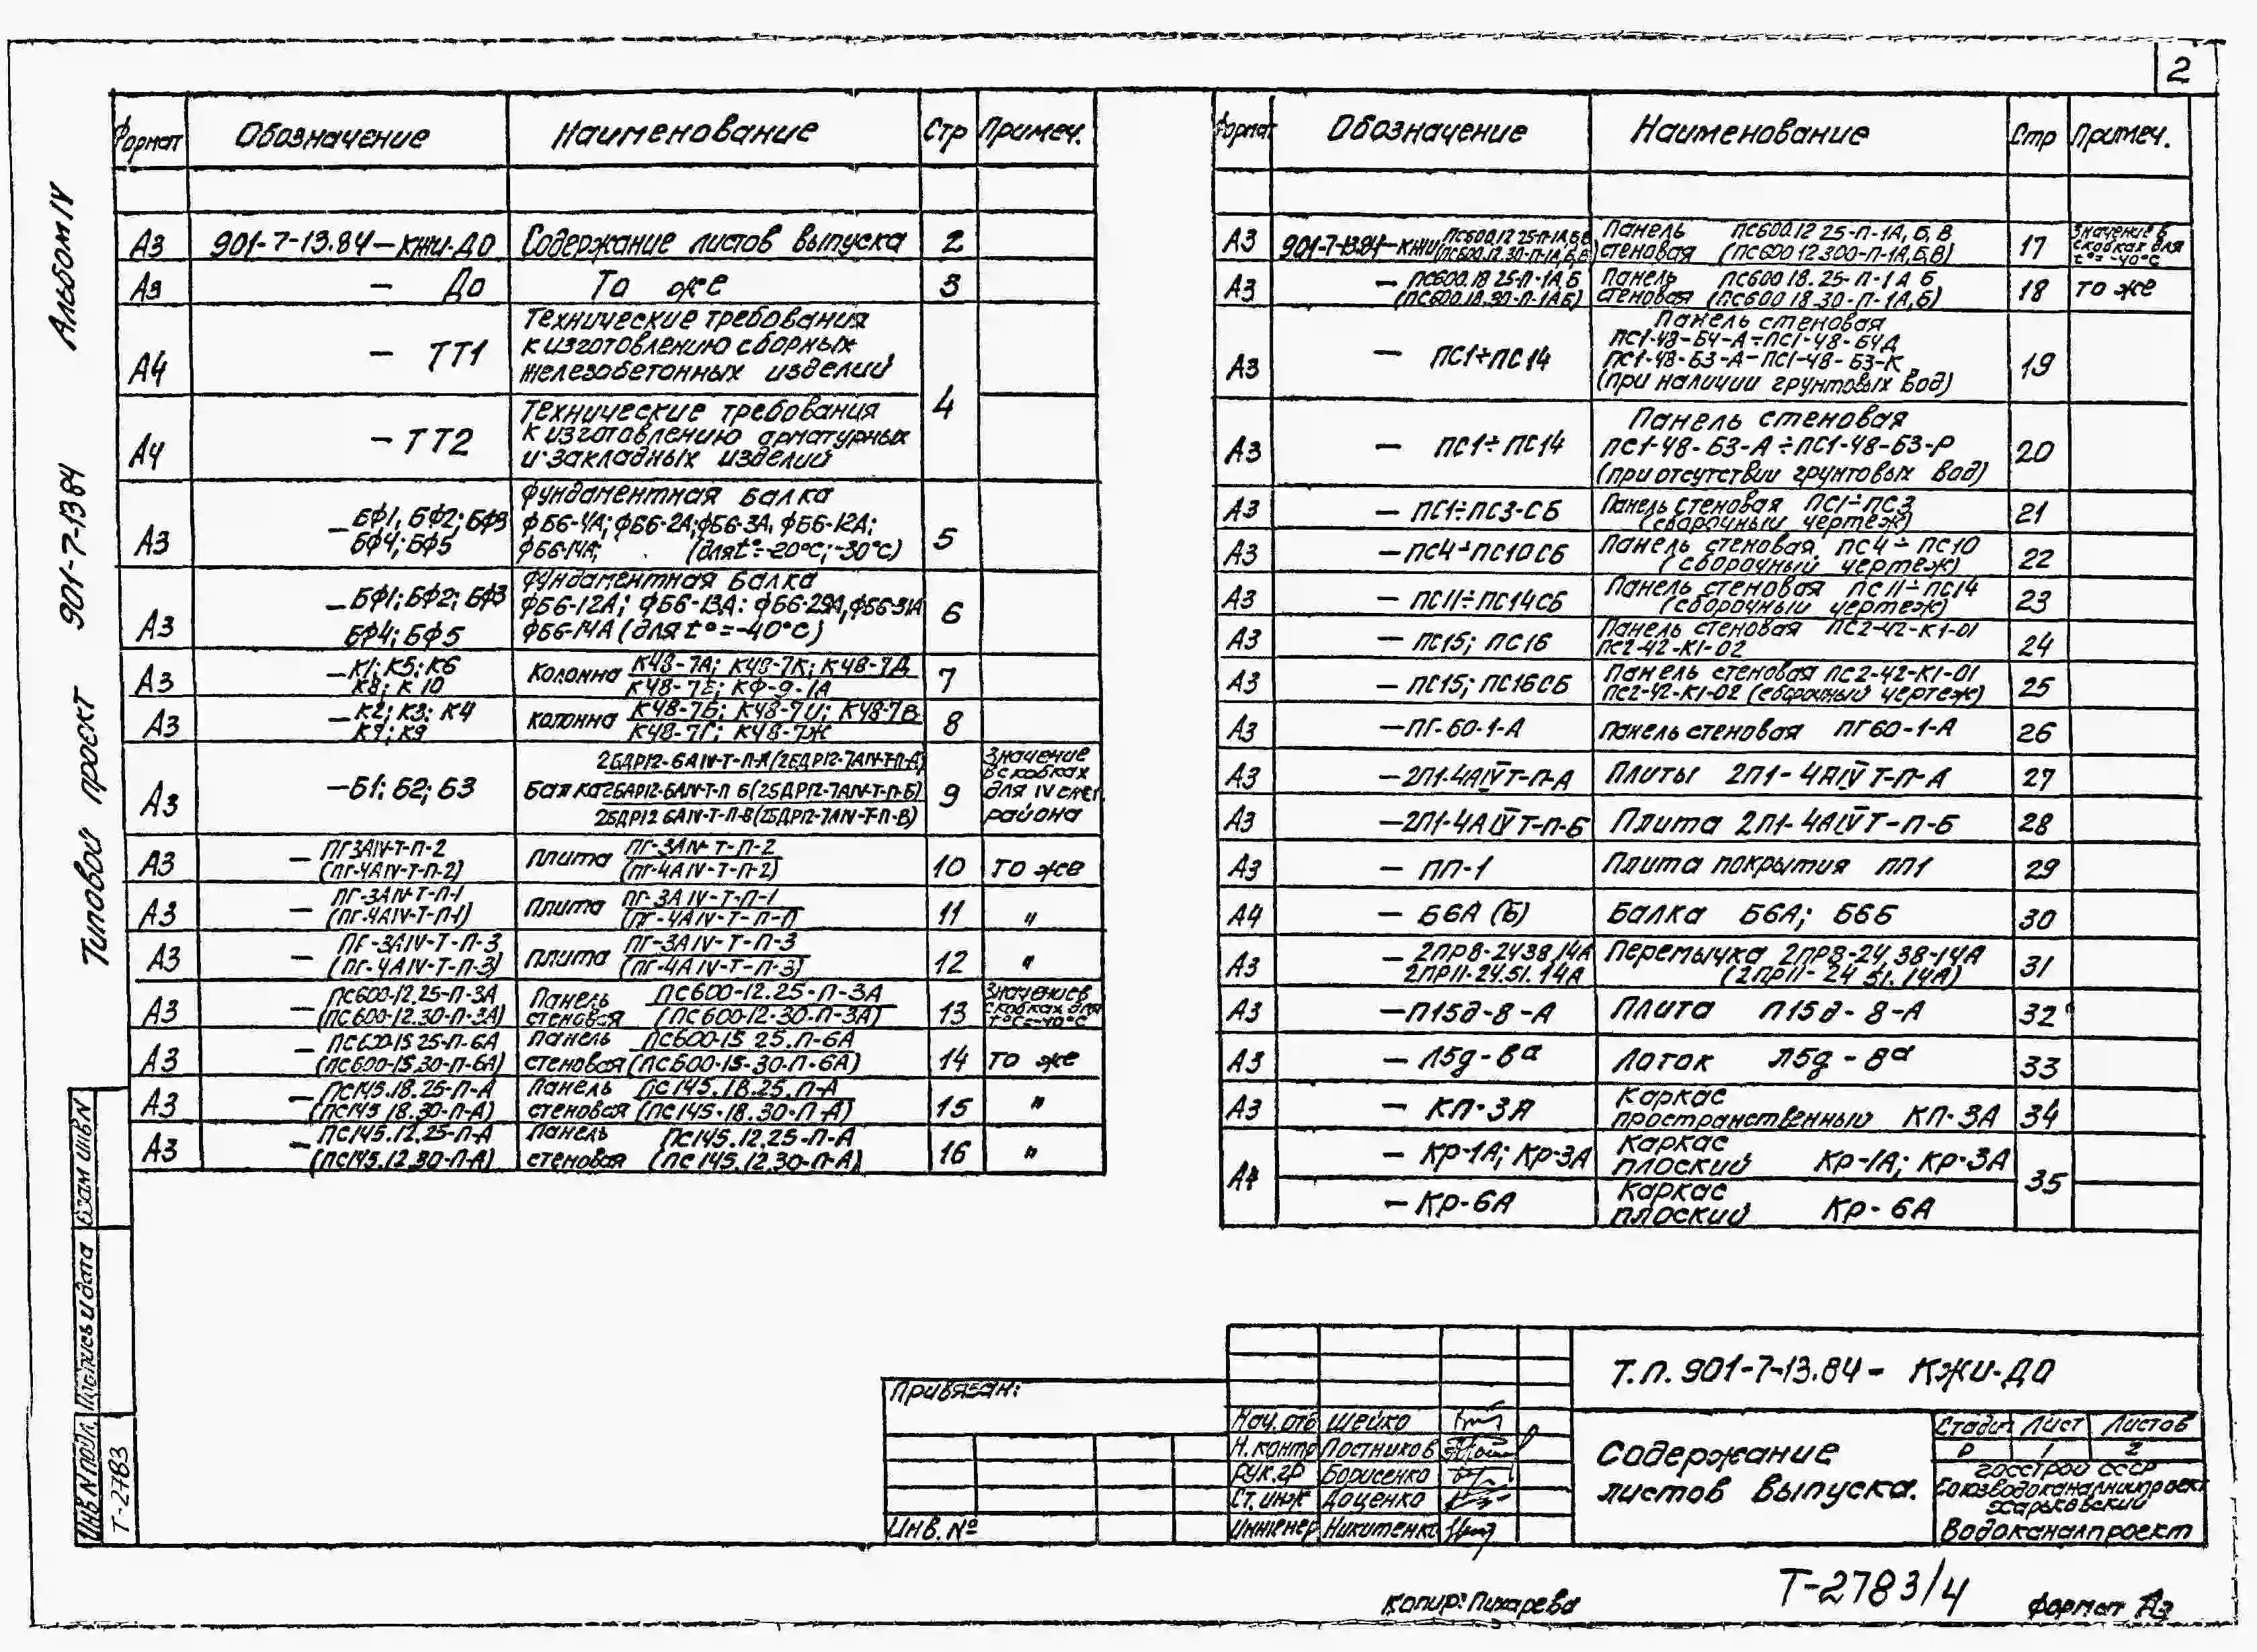 2
Альбом IV
901-7-13.84
Типовой проект
Формат Обозначение Наименование Стр Примеч.
А3 901-7-13.84-КЖИ-ДО Содержание листов выпуска 2
А3 - ДО То же 3
А4 - ТТ1 Технические требования
к изготовлению сборных
железобетонных изделий
4
А4 - ТТ2 Технические требования
к изготовлению арматурных
и закладных изделий
Фундаментная балка
А3 -БФ1; БФ2; БФ3 ФБ6-4А; ФБ6-2А; ФБ6-3А, ФБ6-12А; 5
БФ4; БФ5 ФБ6-14А; (для t°=-20°С; -30°С)
Фундаментная балка
А3 -БФ1; БФ2; БФ3 ФБ6-12А; ФБ6-13А: ФБ6-29А, ФБ6-31А 6
БФ4; БФ5 ФБ6-14А (для t°=-40°С)
А3 -К1; К5; К6 Колонна К48-7А; К48-7К; К48-7Д 7
К8; К10 К48-7Е; КФ-9-1А
А3 -К2; К3; К4 колонна К48-7Б; К48-7И; К48-7В 8
К7; К9 К48-7Г; К48-7Ж
2БДР12-6АIV-Т-П-А (2БДР12-7АIV-Т-П-А) Значение
в скобках
А3 -Б1; Б2; Б3 Балка 2БДР12-6АIV-Т-П Б (2БДР12-7АIV-Т-П-Б) 9 для IV снег.
2БДР12 6АIV-Т-П-В (2БДР12-7АIV-Т-П-В) района
А3 - ПГ3АIV-Т-П-2 плита ПГ-3АIV-Т-П-2 10 то же
(ПГ-4АIV-Т-П-2) (ПГ-4АIV-Т-П-2)
А3 - ПГ-3АIV-Т-П-1 плита ПГ-3АIV-Т-П-1 11 "
(ПГ-4АIV-Т-П-1) (ПГ-4АIV-Т-П-1)
А3 - ПГ-3АIV-Т-П-3 плита ПГ-3АIV-Т-П-3 12 "
(ПГ-4АIV-Т-П-3) (ПГ-4АIV-Т-П-3)
А3 - ПС600-12.25-П-3А Панель ПС600-12.25-П-3А 13 Значение в
(ПС600-12.30-П-3А) стеновая (ПС600-12.30-П-3А) скобках для
t°С=-40°С
А3 - ПС600-15 25-П-6А Панель ПС600-15 25.П-6А 14 то же
(ПС600-15.30-П-6А) стеновая (ПС600-15.30-П-6А)
А3 - ПС145.18.25-П-А Панель ПС145.18.25.П-А 15 "
(ПС145 18.30-П-А) стеновая (ПС145.18.30.П-А)
А3 - ПС145.12.25-П-А Панель ПС145.12.25-П-А 16 "
(ПС145.12.30-П-А) стеновая (ПС145.12.30-П-А)
Формат Обозначение Наименование Стр Примеч.
А3 901-7-13.84-КЖИ ПС600.12 25-П-1А,Б,В Панель ПС600.12 25-П-1А, Б, В 17 Значение в
(ПС600.12.30-П-1А,Б,В) стеновая (ПС600 12.300-П-1А,Б,В) скобках для
t°=-40°С
А3 - ПС600.18 25-П-1А,Б Панель ПС600 18.25-П-1А Б 18 то же
(ПС600.18.30-П-1А,Б) стеновая (ПС600 18.30-П-1А,Б)
Панель стеновая
А3 - ПС1÷ПС14 ПС1-48-Б4-А÷ПС1-48-Б4Д 19
ПС1-48-Б3-А-ПС1-48-Б3-К
(при наличии грунтовых вод)
Панель стеновая
А3 - ПС1÷ПС14 ПС1-48-Б3-А÷ПС1-48-Б3-Р 20
(при отсутствии грунтовых вод)
А3 - ПС1÷ПС3-СБ Панель стеновая ПС1÷ПС3 21
(сборочный чертеж)
А3 -ПС4÷ПС10СБ Панель стеновая ПС4÷ПС10 22
(сборочный чертеж)
А3 - ПС11÷ПС14СБ Панель стеновая ПС11÷ПС14 23
(сборочный чертеж)
А3 - ПС15; ПС16 Панель стеновая ПС2-42-К1-01 24
ПС2-42-К1-02
А3 - ПС15; ПС16СБ Панель стеновая ПС2-42-К1-01 25
ПС2-42-К1-02 (сборочный чертеж)
А3 -ПГ-60-1-А Панель стеновая ПГ60-1-А 26
А3 -2П1-4АIVТ-П-А Плиты 2П1-4АIVТ-П-А 27
А3 -2П1-4АIVТ-П-Б Плита 2П1-4АIVТ-П-Б 28
А3 - ПП-1 Плита покрытия ПП1 29
А4 - Б6А (Б) Балка Б6А; Б6Б 30
А3 - 2ПР8-24 38,14А Перемычка 2ПР8-24, 38-14А 31
2ПР11-24.51.14А (2ПР11-24 51.14А)
А3 -П15д-8-А Плита П15д-8-А 32
А3 - Л5д-8а Лоток Л5д-8а 33
А3 - КП-3А Каркас 34
пространственный КП-3А
А4 - Кр-1А; Кр-3А Каркас
плоский Кр-1А; Кр-3А
35
- Кр-6А Каркас
плоский Кр-6А
Взам инв.N
Подпись и дата
Инв N подл.
Т-2783
Привязан:
Инв. №
Т.П. 901-7-13.84- КЖИ-ДО
Нач. отд Шейко
Н.контр Постников
Рук.гр Борисенко
Ст. инж Доценко
Инженер Никитенко
Содержание
листов выпуска.
Стадия Лист Листов
Р 1 2
Госстрой СССР
Союзводоканалниипроект
Харьковский
Водоканалпроект
Т-2783/4
Копир: Пихарева
Формат А3